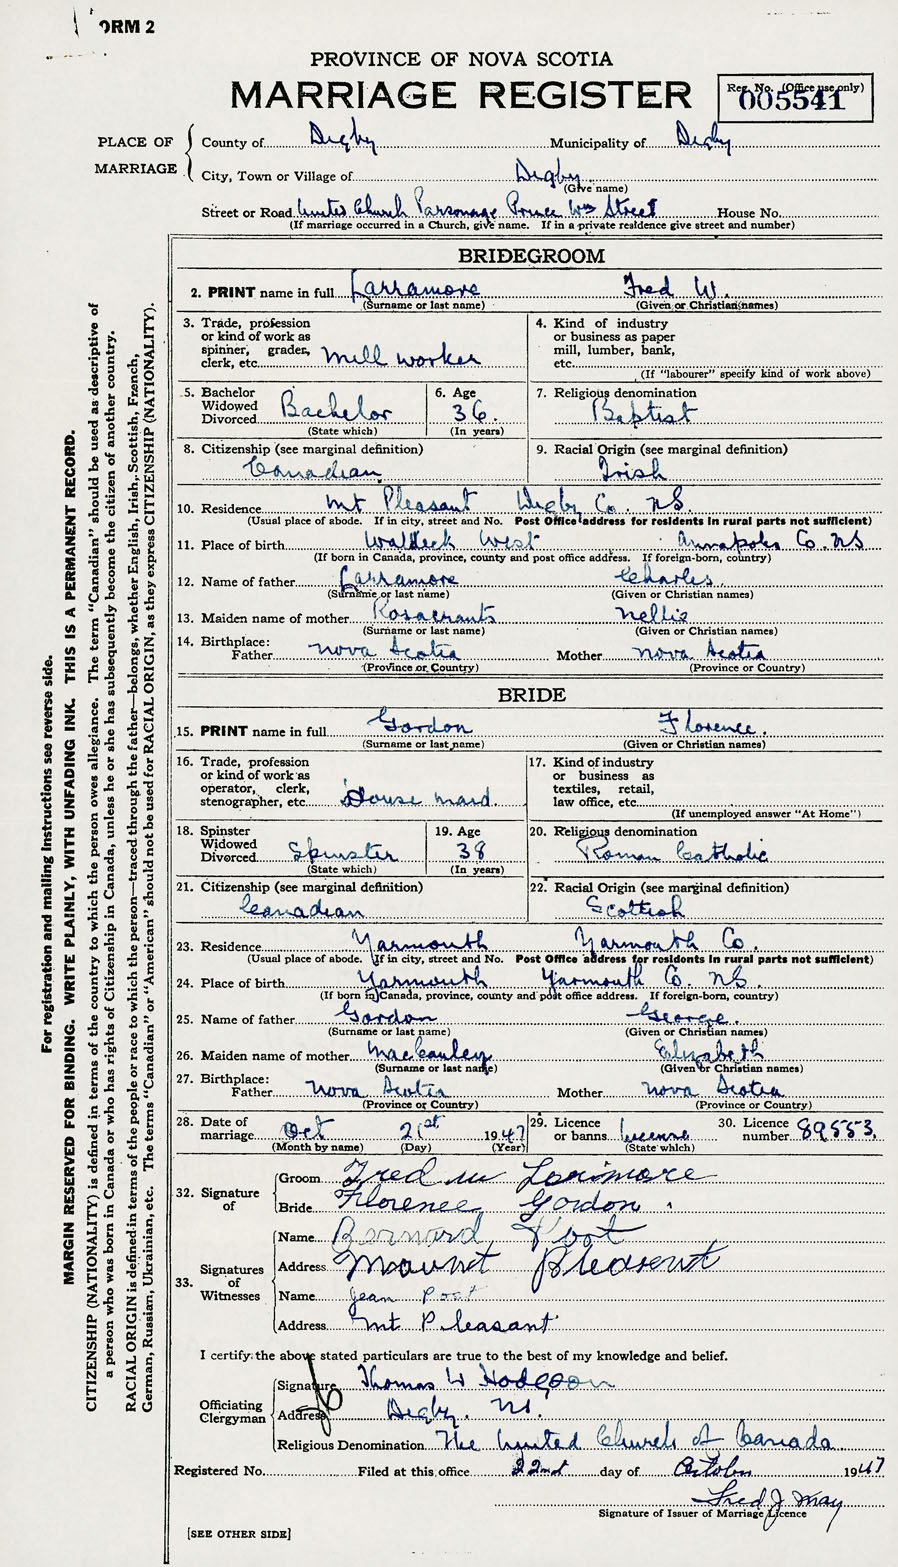 ORM 2
PROVINCE OF NOVA SCOTIA
MARRIAGE REGISTER
Reg. No. (Office use only)
005541
PLACE OF MARRIAGE
County of Digby Municipality of Digby
City, Town or Village of Digby
(Give name)
Street or Road United Church Parsonage Prince Wm Street House No.
(If marriage occurred in a Church, give name. If in a private residence give street and number)
BRIDEGROOM
2. PRINT name in full Larramore Fred W.
(Surname or last name) (Given or Christian names)
3. Trade, profession or kind of work as spinner, grader, clerk, etc. Mill worker
4. Kind of industry or business as paper mill, lumber, bank, etc.
(If "labourer" specify kind of work above)
5. Bachelor Widowed Divorced Bachelor
(State which)
6. Age 36.
(In years)
7. Religious denomination Baptist
8. Citizenship (see marginal definition) Canadian
9. Racial Origin (see marginal definition) Irish
10. Residence Mt Pleasant Digby Co. NS.
(Usual place of abode. If in city, street and No. Post Office address for residents in rural parts not sufficient)
11. Place of birth Waldeck West Annapolis Co. NS
(If born in Canada, province, county and post office address. If foreign-born, country)
12. Name of father Larramore Charles.
(Surname or last name) (Given or Christian names)
13. Maiden name of mother Rosacrants Nellie
(Surname or last name) (Given or Christian names)
14. Birthplace: Father Nova Scotia Mother Nova Scotia
(Province or Country) (Province or Country)
BRIDE
15. PRINT name in full Gordon Florence.
(Surname or last name) (Given or Christian names)
16. Trade, profession or kind of work as operator, clerk, stenographer, etc. House maid.
17. Kind of industry or business as textiles, retail, law office, etc.
(If unemployed answer "At Home")
18. Spinster Widowed Divorced Spinster
(State which)
19. Age 38
(In years)
20. Religious denomination Roman Catholic
21. Citizenship (see marginal definition) Canadian
22. Racial Origin (see marginal definition) Scottish
23. Residence Yarmouth Yarmouth Co.
(Usual place of abode. If in city, street and No. Post Office address for residents in rural parts not sufficient)
24. Place of birth Yarmouth Yarmouth Co. NS.
(If born in Canada, province, county and post office address. If foreign-born, country)
25. Name of father Gordon George.
(Surname or last name) (Given or Christian names)
26. Maiden name of mother MacCauley Elizabeth
(Surname or last name) (Given or Christian names)
27. Birthplace: Father Nova Scotia Mother Nova Scotia
(Province or Country) (Province or Country)
28. Date of marriage Oct 21st 1947
(Month by name) (Day) (Year)
29. Licence or banns license
(State which)
30. Licence number 89553.
32. Signature of
Groom Fred W Lorimore
Bride Florence Gordon.
33. Signatures of Witnesses
Name Bernard Poot
Address Mount Pleasent
Name Jean Poot
Address Mt Pleasant
I certify the above stated particulars are true to the best of my knowledge and belief.
Officiating Clergyman
Signature Thomas W Hodgson
Address Digby. NS.
Religious Denomination The United Church of Canada
Registered No. Filed at this office 22nd day of October 1947
Fred J. May
Signature of Issuer of Marriage Licence
[SEE OTHER SIDE]
For registration and mailing instructions see reverse side.
MARGIN RESERVED FOR BINDING. WRITE PLAINLY, WITH UNFADING INK. THIS IS A PERMANENT RECORD.
CITIZENSHIP (NATIONALITY) is defined in terms of the country to which the person owes allegiance. The term "Canadian" should be used as descriptive of
a person who was born in Canada or who has rights of Citizenship in Canada, unless he or she has subsequently become the citizen of another country.
RACIAL ORIGIN is defined in terms of the people or race to which the person—traced through the father—belongs, whether English, Irish, Scottish, French,
German, Russian, Ukrainian, etc. The terms "Canadian" or "American" should not be used for RACIAL ORIGIN, as they express CITIZENSHIP (NATIONALITY).